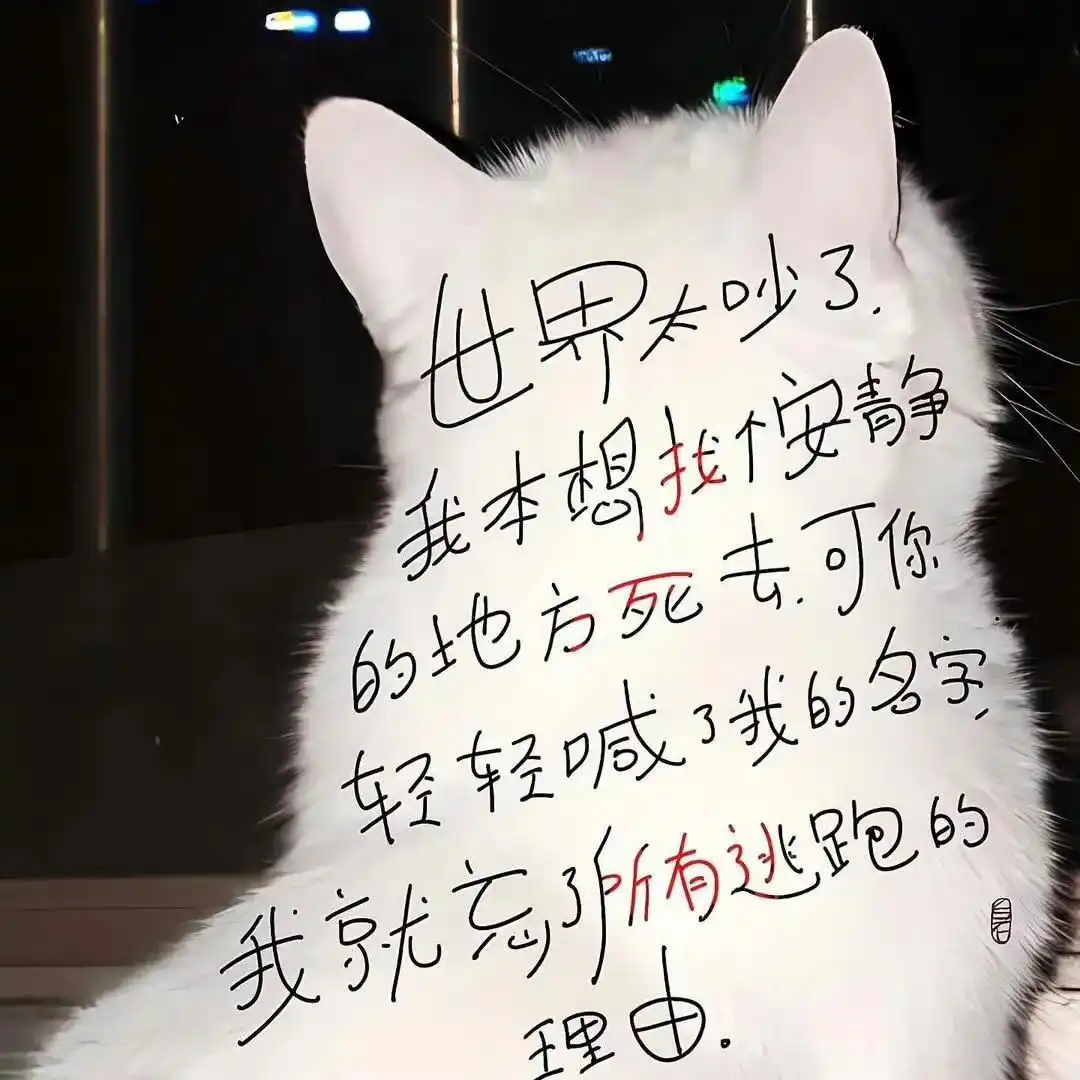 世界太吵了.
我本想找个安静
的地方死去.可你
轻轻喊了我的名字,
我就忘了所有逃跑的
理由.